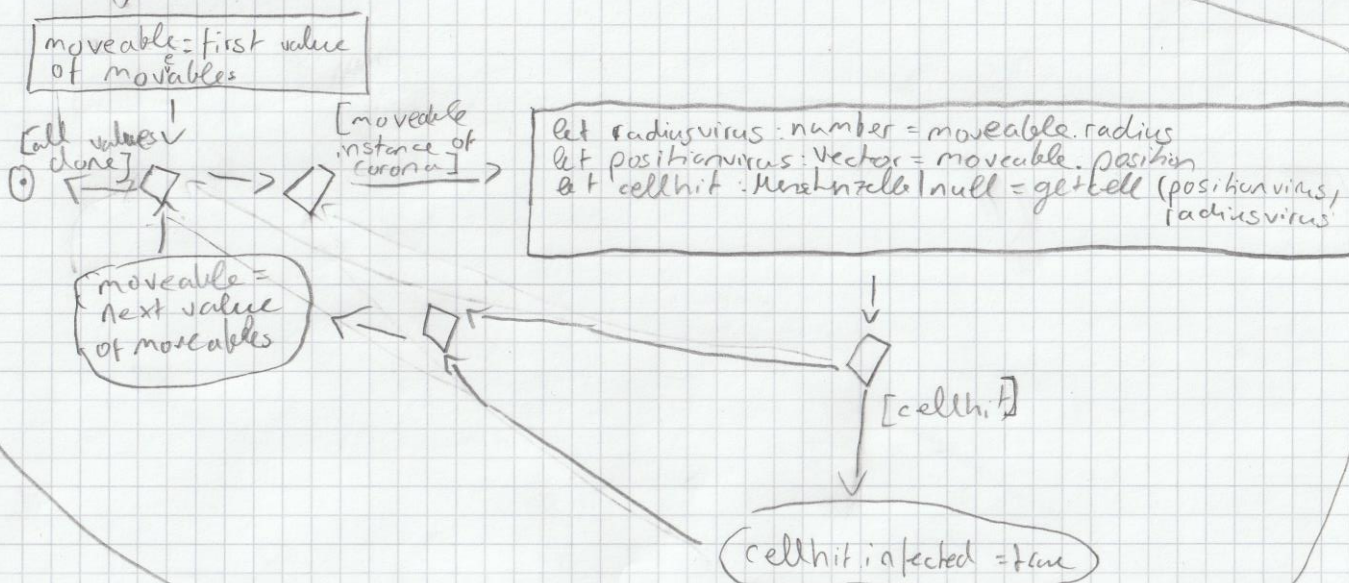 moveable = first value
of moveables
[all values
done]
[moveable
instance of
corona]
let radiusvirus : number = moveable.radius
let positionvirus : Vector = moveable.position
let cellhit : Menschnzelle | null = getcell (positionvirus,
radiusvirus
moveable =
next value
of moveables
[cellhit]
cellhit.infected = true